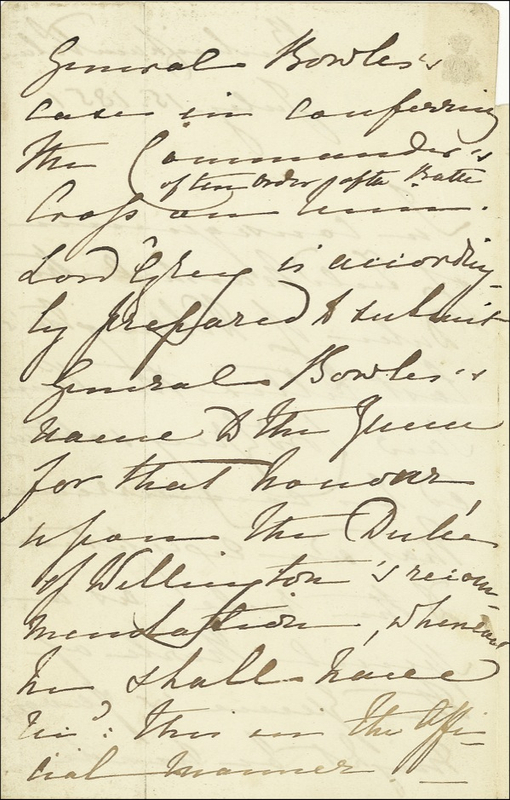 General Bowles's
case in conferring
the Commander's
of the Order of the Bath
Cross on him.
Lord Grey is according-
ly prepared to submit
General Bowles's
name to the Queen
for that honour,
upon the Duke
of Wellington's recom-
mendation, whenever
he shall have
this in the Offi-
cial manner. —